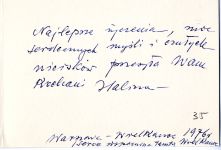 Najlepsze życzenia, moc
serdecznych myśli i czułych
uścisków przesyła Wam
Kochani Halina
35
Warszawa - Wielkanoc 1976 r